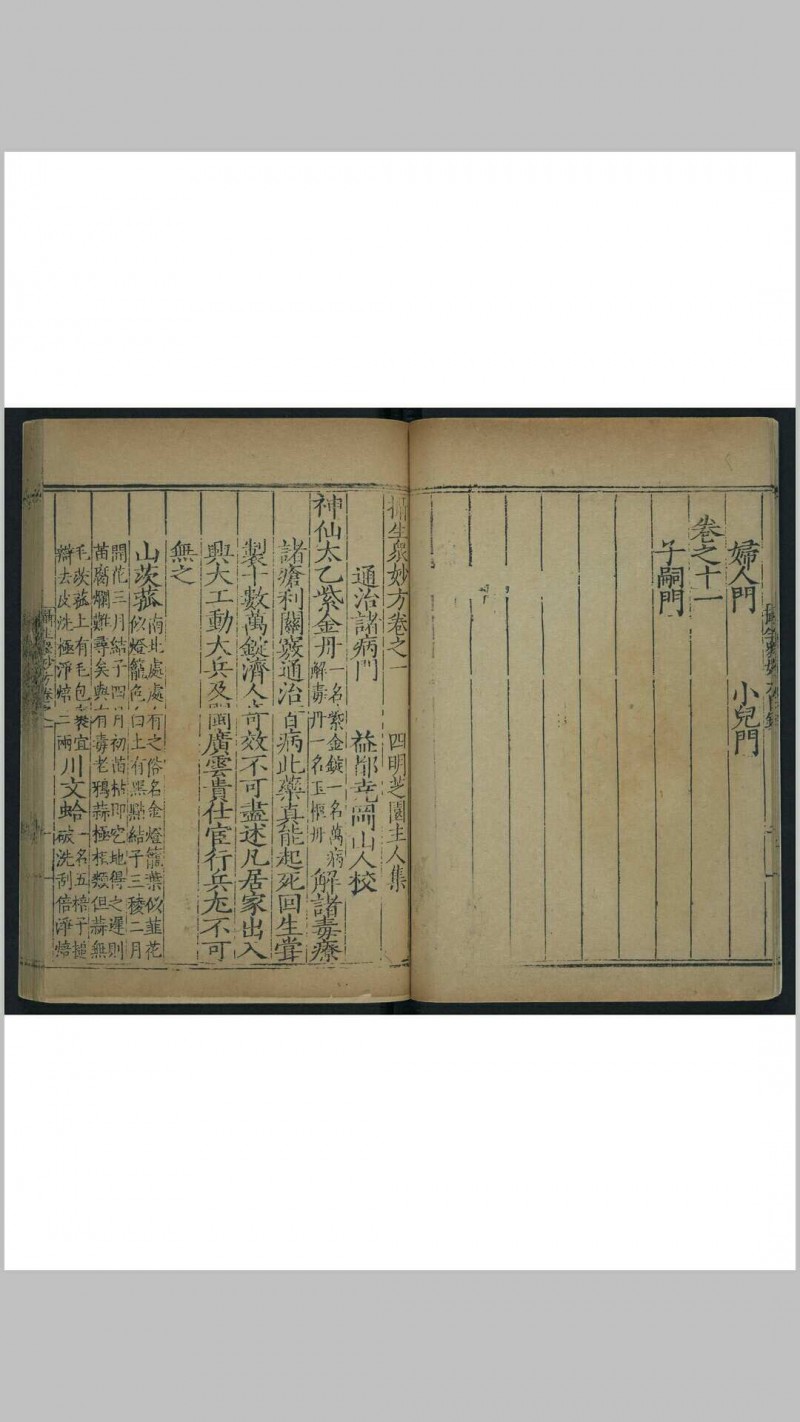 婦人門　小兒門
卷之十一
子嗣門
攝生眾妙方卷之一　四明芝園主人集
通治諸病門　益都堯岡山人校
神仙太乙紫金丹一名紫金錠一名萬病解毒丹一名玉樞丹解諸毒療
諸瘡利關竅通治百病此藥真能起死回生嘗
製十數萬錠濟人奇效不可盡述凡居家出入
興大工動大兵及閩廣雲貴仕宦行兵尤不可
無之
山茨菰南北處處有之俗名金燈籠葉似韮花似燈籠色白上有黑點結子三稜二月
開花三月結子四月初苗枯即空地得之遲則苗腐爛難尋矣與有毒老鴉蒜極相類但蒜無
毛茨菰上有毛包裹宜辯去皮洗極淨焙二兩川文蛤一名五棓子搥破洗刮倍淨焙